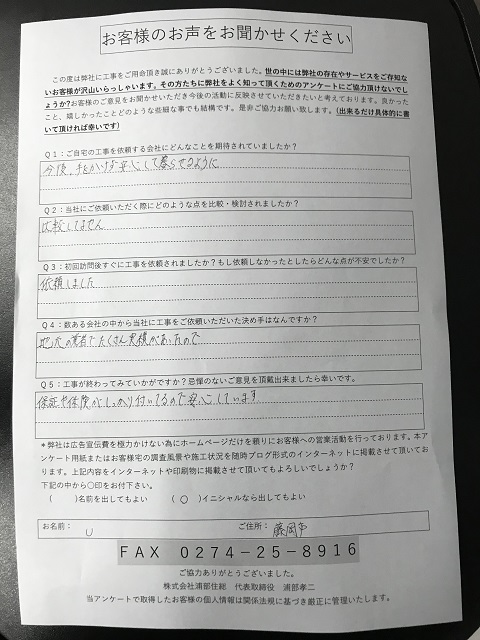 お客様のお声をお聞かせください
この度は弊社に工事をご用命頂き誠にありがとうございました。世の中には弊社の存在やサービスをご存知な
いお客様が沢山いらっしゃいます。その方たちに弊社をよく知って頂くためのアンケートにご協力頂けないでし
ょうか?お客様のご意見をお聞かせいただき今後の活動に反映させていただきたいと考えております。良かった
こと、嬉しかったことどのような些細な事でも結構です。是非ご協力お願い致します。(出来るだけ具体的に書
いて頂ければ幸いです)
Q1:ご自宅の工事を依頼する会社にどんなことを期待されていましたか?
今後、手をかけず安心して暮らせるように
Q2:当社にご依頼いただく際にどのような点を比較・検討されましたか?
比較してません
Q3:初回訪問後すぐに工事を依頼されましたか?もし依頼しなかったとしたらどんな点が不安でしたか?
依頼しました
Q4:数ある会社の中から当社に工事をご依頼いただいた決め手はなんですか?
地元の業者でたくさん実績があったので
Q5:工事が終わってみていかがですか?忌憚のないご意見を頂戴出来ましたら幸いです。
保証や保険がしっかり付いてるので安心しています
*弊社は広告宣伝費を極力かけない為にホームページだけを頼りにお客様への営業活動を行っております。本ア
ンケート用紙またはお客様宅の調査風景や施工状況を随時ブログ形式のインターネットに掲載させて頂いてお
ります。上記内容をインターネットや印刷物に掲載させて頂いてもよろしいでしょうか?
下記の中から○印をお付下さい。
( )名前を出してもよい ( ○ )イニシャルなら出してもよい
お名前: U ご住所: 藤岡市
FAX 0274-25-8916
ご協力ありがとうございました。
株式会社浦部住総 代表取締役 浦部孝二
当アンケートで取得したお客様の個人情報は関係法規に基づき厳正に管理いたします。